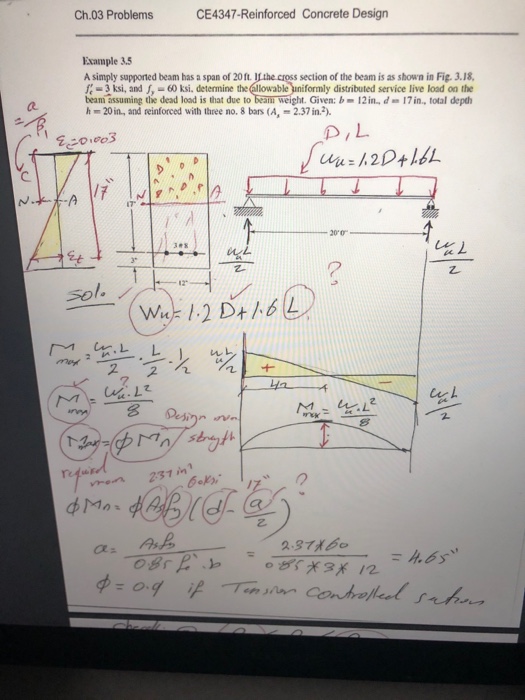 Ch.03 Problems CE4347-Reinforced Concrete Design
Example 3.5
A simply supported beam has a span of 20 ft. If the cross section of the beam is as shown in Fig. 3.18,
f'c = 3 ksi, and fy = 60 ksi, determine the allowable uniformly distributed service live load on the
beam assuming the dead load is that due to beam weight. Given: b = 12 in., d = 17 in., total depth
h = 20 in., and reinforced with three no. 8 bars (As = 2.37 in.²).
a/β1
εc=0.003
D, L
Wu=1.2D+1.6L
C
17"
N
A
N
A
17"
3 #8
3"
12"
εt
20'0"
WuL/2
WuL/2
?
Sol.
Wu=1.2 D+1.6 L
Mmax = Wu.L/2 . L/2 . 1/2
WuL/2
+
-
L/2
?
Mmax = Wu.L²/8
Mmax = Wu.L²/8
WuL/2
Design
Mmax = φMn strength
required
2.37 in² 60ksi 17" ?
φMn = φ As fy (d - a/2)
a = As fy / 0.85 f'c . b = 2.37*60 / 0.85*3*12 = 4.65"
φ = 0.9 if Tension controlled section